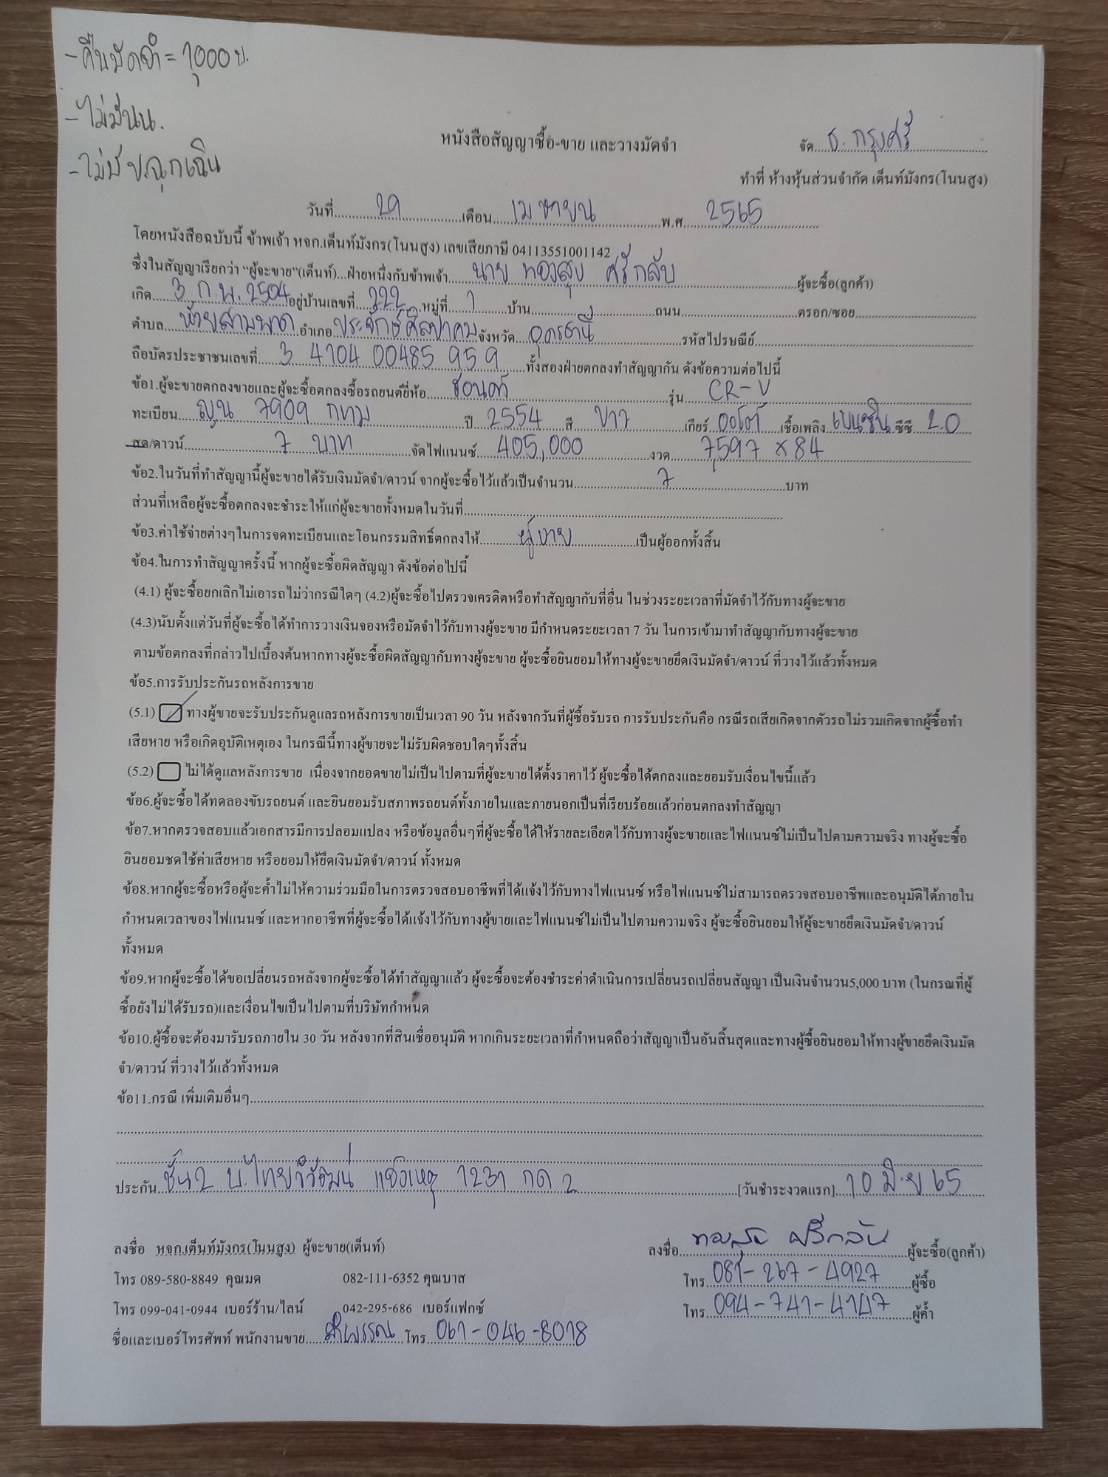 -คืนมัดจำ = 1,000 บ.
-ไม่มีนน.
-ไม่มีฉุกเฉิน
หนังสือสัญญาซื้อ-ขาย และวางมัดจำ
จัด ธ. กรุงศรี
ทำที่ ห้างหุ้นส่วนจำกัด เต็นท์มังกร(โนนสูง)
วันที่ 29 เดือน เมษายน พ.ศ. 2565
โดยหนังสือฉบับนี้ ข้าพเจ้า หจก.เต็นท์มังกร(โนนสูง) เลขเสียภาษี 04113551001142
ซึ่งในสัญญาเรียกว่า "ผู้จะขาย"(เต็นท์)...ฝ่ายหนึ่งกับข้าพเจ้า นาย ทองสุข ศรีกลับ ผู้จะซื้อ(ลูกค้า)
เกิด 3 ก.พ. 2504 อยู่บ้านเลขที่ 222 หมู่ที่ 1 บ้าน ถนน ตรอก/ซอย
ตำบล ห้วยสามพาด อำเภอ ประจักษ์ศิลปาคม จังหวัด อุดรธานี รหัสไปรษณีย์
ถือบัตรประชาชนเลขที่ 3 4104 00485 959 ทั้งสองฝ่ายตกลงทำสัญญากัน ดังข้อความต่อไปนี้
ข้อ1.ผู้จะขายตกลงขายและผู้จะซื้อตกลงซื้อรถยนต์ยี่ห้อ ฮอนด้า รุ่น CR-V
ทะเบียน ญน 7909 กทม ปี 2554 สี ขาว เกียร์ ออโต้ เชื้อเพลิง เบนซิน ซีซี 2.0
สด/ดาวน์ 7 บาท จัดไฟแนนซ์ 405,000 งวด 7,597 x 84
ข้อ2.ในวันที่ทำสัญญานี้ผู้จะขายได้รับเงินมัดจำ/ดาวน์ จากผู้จะซื้อไว้แล้วเป็นจำนวน 7 บาท
ส่วนที่เหลือผู้จะซื้อตกลงจะชำระให้แก่ผู้จะขายทั้งหมดในวันที่
ข้อ3.ค่าใช้จ่ายต่างๆในการจดทะเบียนและโอนกรรมสิทธิ์ตกลงให้ ผู้ขาย เป็นผู้ออกทั้งสิ้น
ข้อ4.ในการทำสัญญาครั้งนี้ หากผู้จะซื้อผิดสัญญา ดังข้อต่อไปนี้
(4.1) ผู้จะซื้อยกเลิกไม่เอารถไม่ว่ากรณีใดๆ (4.2)ผู้จะซื้อไปตรวจเครดิตหรือทำสัญญากับที่อื่น ในช่วงระยะเวลาที่มัดจำไว้กับทางผู้จะขาย
(4.3)นับตั้งแต่วันที่ผู้จะซื้อได้ทำการวางเงินจองหรือมัดจำไว้กับทางผู้จะขาย มีกำหนดระยะเวลา 7 วัน ในการเข้ามาทำสัญญากับทางผู้จะขาย
ตามข้อตกลงที่กล่าวไปเบื้องต้นหากทางผู้จะซื้อผิดสัญญากับทางผู้จะขาย ผู้จะซื้อยินยอมให้ทางผู้จะขายยึดเงินมัดจำ/ดาวน์ ที่วางไว้แล้วทั้งหมด
ข้อ5.การรับประกันรถหลังการขาย
(5.1) ทางผู้ขายจะรับประกันดูแลรถหลังการขายเป็นเวลา 90 วัน หลังจากวันที่ผู้ซื้อรับรถ การรับประกันคือ กรณีรถเสียเกิดจากตัวรถไม่รวมเกิดจากผู้ซื้อทำ
เสียหาย หรือเกิดอุบัติเหตุเอง ในกรณีนี้ทางผู้ขายจะไม่รับผิดชอบใดๆทั้งสิ้น
(5.2) ไม่ได้ดูแลหลังการขาย เนื่องจากยอดขายไม่เป็นไปตามที่ผู้จะขายได้ตั้งราคาไว้ ผู้จะซื้อได้ตกลงและยอมรับเงื่อนไขนี้แล้ว
ข้อ6.ผู้จะซื้อได้ทดลองขับรถยนต์ และยินยอมรับสภาพรถยนต์ทั้งภายในและภายนอกเป็นที่เรียบร้อยแล้วก่อนตกลงทำสัญญา
ข้อ7.หากตรวจสอบแล้วเอกสารมีการปลอมแปลง หรือข้อมูลอื่นๆที่ผู้จะซื้อได้ให้รายละเอียดไว้กับทางผู้จะขายและไฟแนนซ์ไม่เป็นไปตามความจริง ทางผู้จะซื้อ
ยินยอมชดใช้ค่าเสียหาย หรือยอมให้ยึดเงินมัดจำ/ดาวน์ ทั้งหมด
ข้อ8.หากผู้จะซื้อหรือผู้จะค้ำไม่ให้ความร่วมมือในการตรวจสอบอาชีพที่ได้แจ้งไว้กับทางไฟแนนซ์ หรือไฟแนนซ์ไม่สามารถตรวจสอบอาชีพและอนุมัติได้ภายใน
กำหนดเวลาของไฟแนนซ์ และหากอาชีพที่ผู้จะซื้อได้แจ้งไว้กับทางผู้ขายและไฟแนนซ์ไม่เป็นไปตามความจริง ผู้จะซื้อยินยอมให้ผู้จะขายยึดเงินมัดจำ/ดาวน์
ทั้งหมด
ข้อ9.หากผู้จะซื้อได้ขอเปลี่ยนรถหลังจากผู้จะซื้อได้ทำสัญญาแล้ว ผู้จะซื้อจะต้องชำระค่าดำเนินการเปลี่ยนรถเปลี่ยนสัญญา เป็นเงินจำนวน5,000 บาท (ในกรณีที่ผู้
ซื้อยังไม่ได้รับรถ)และเงื่อนไขเป็นไปตามที่บริษัทกำหนด
ข้อ10.ผู้ซื้อจะต้องมารับรถภายใน 30 วัน หลังจากที่สินเชื่ออนุมัติ หากเกินระยะเวลาที่กำหนดถือว่าสัญญาเป็นอันสิ้นสุดและทางผู้ซื้อยินยอมให้ทางผู้ขายยึดเงินมัด
จำ/ดาวน์ ที่วางไว้แล้วทั้งหมด
ข้อ11.กรณี เพิ่มเติมอื่นๆ
ประกัน ชั้น2 บ.ไทยวิวัฒน์ แจ้งเหตุ 1231 กด 2 [วันชำระงวดแรก] 10 มิ.ย 65
ลงชื่อ หจก.เต็นท์มังกร(โนนสูง) ผู้จะขาย(เต็นท์)
ลงชื่อ ทองสุข ศรีกลับ ผู้จะซื้อ(ลูกค้า)
โทร 089-580-8849 คุณมด 082-111-6352 คุณบาส
โทร 081-267-4927 ผู้ซื้อ
โทร 099-041-0944 เบอร์ร้าน/ไลน์ 042-295-686 เบอร์แฟกซ์
โทร 094-741-4147 ผู้ค้ำ
ชื่อและเบอร์โทรศัพท์ พนักงานขาย โทร 061-046-8018